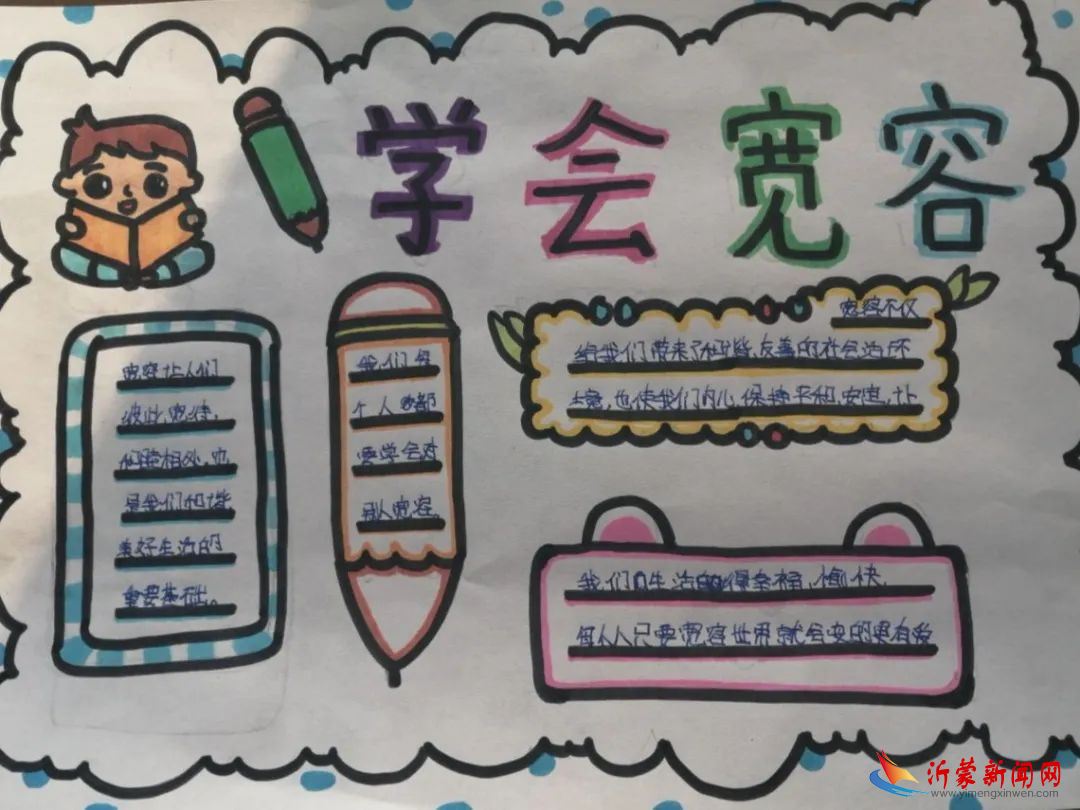 学会宽容
宽容让人们
彼此宽待,
和睦相处,也
是我们和谐
美好生活的
重要基础。
我们每
个人都
要学会对
别人宽容。
宽容不仅
给我们带来了和谐、友善的社会治环
境,也使我们内心保持平和、安定,让
我们生活的得幸福,愉快,
每人人只要宽容世界就会变的更有爱
沂蒙新闻网
www.yimengxinwen.com